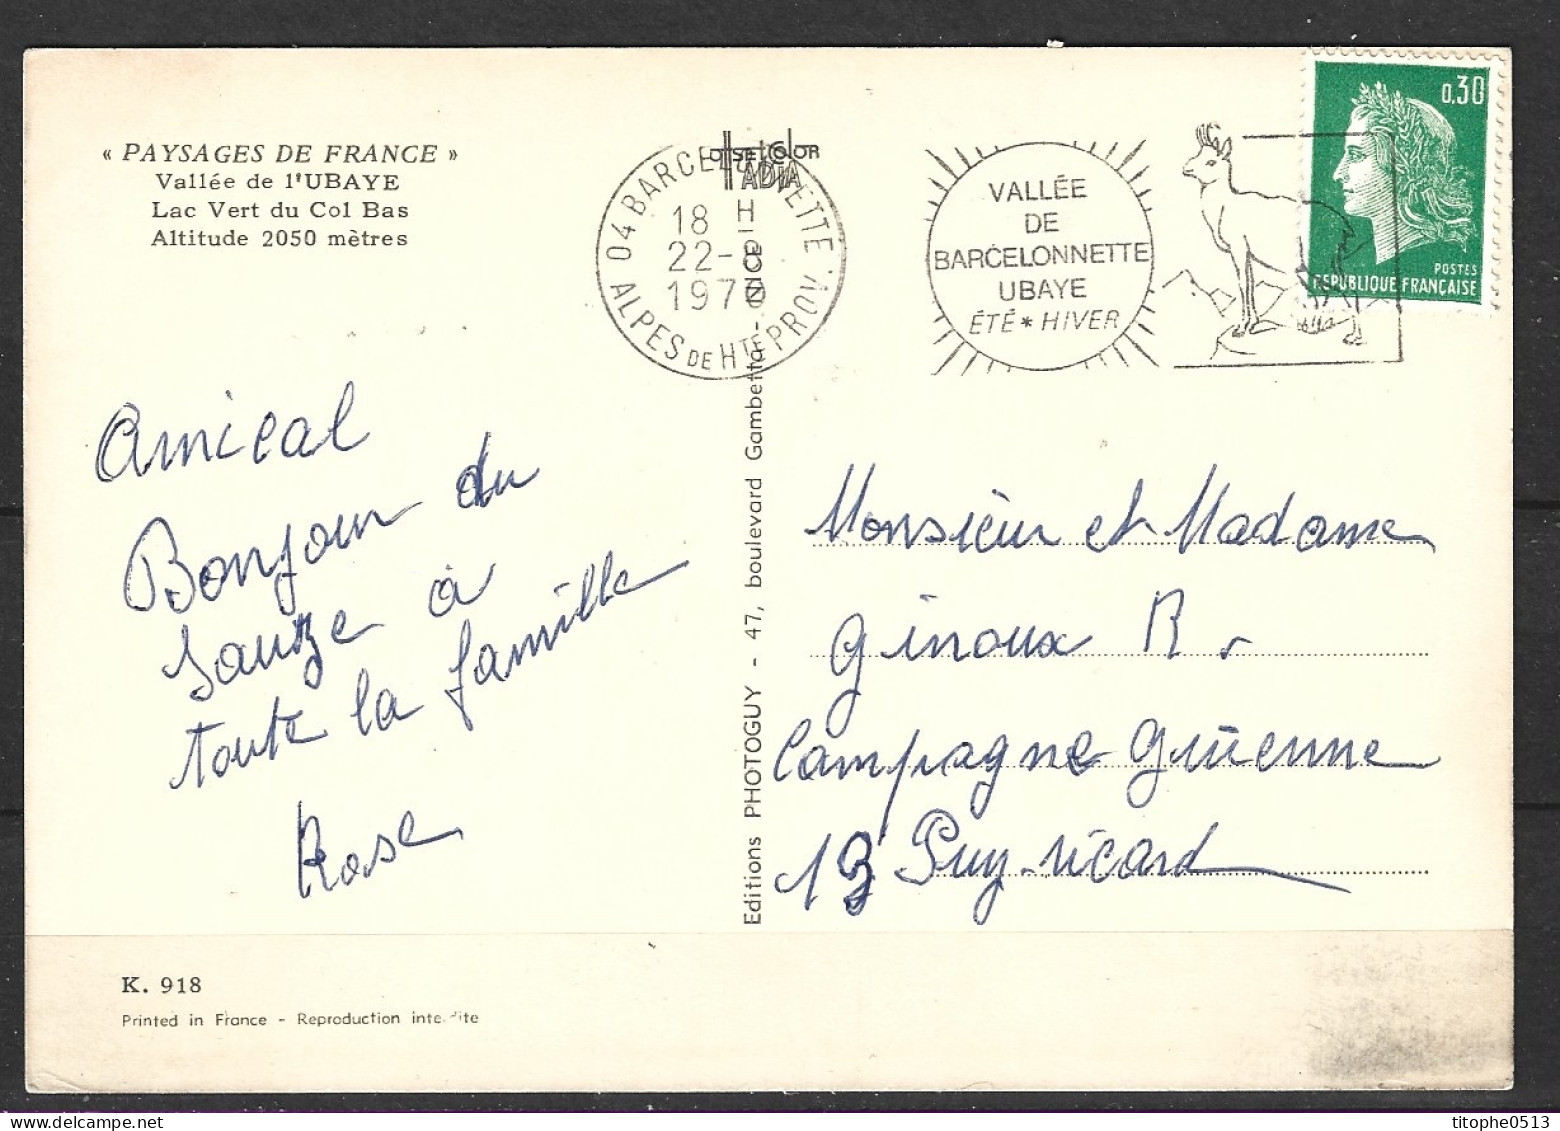 « PAYSAGES DE FRANCE »
Vallée de l'UBAYE
Lac Vert du Col Bas
Altitude 2050 mètres
04 BARCELONNETTE
18 H
22-8
1970
ALPES DE HTE PROV.
VALLÉE
DE
BARCELONNETTE
UBAYE
ÉTÉ * HIVER
0,30
POSTES
REPUBLIQUE FRANÇAISE
Amical
Bonjour du
Sauze à
toute la famille
Rose
Editions PHOTOGUY - 47, boulevard Gambetta - NICE
Monsieur et Madame
Ginoux R.
Campagne Guienne
13 Puy-ricard
K. 918
Printed in France - Reproduction interdite
titophe0513